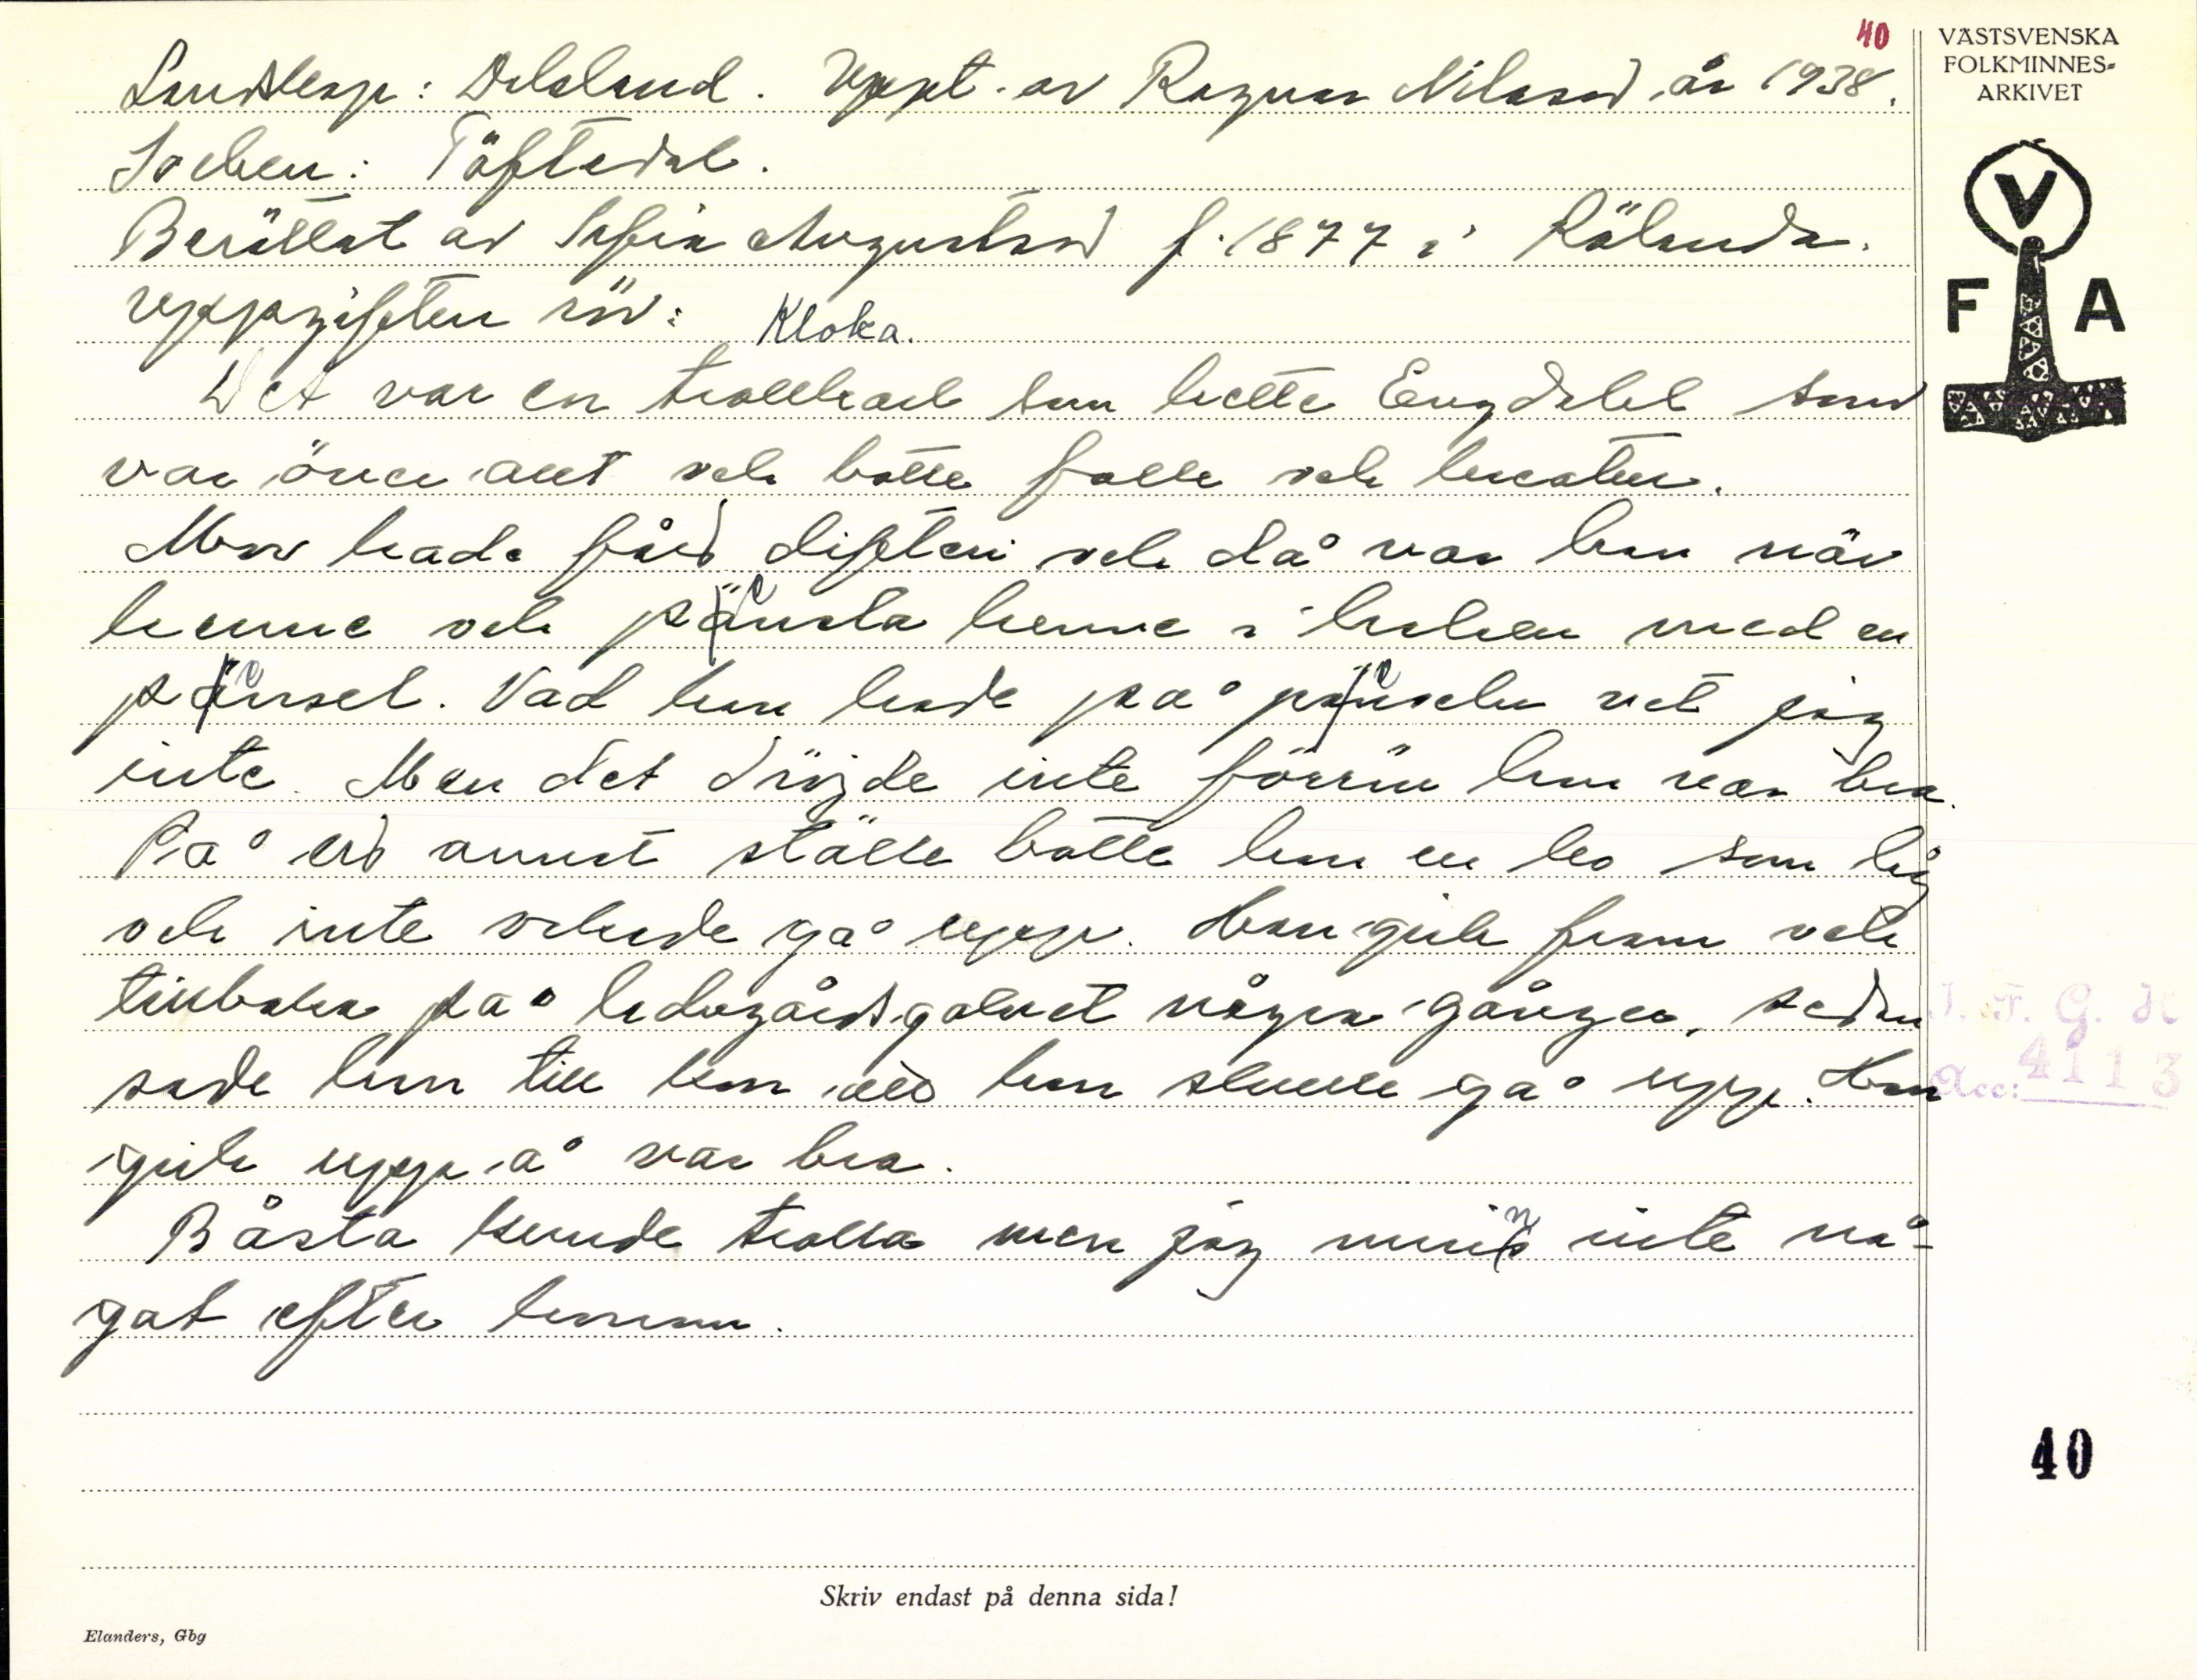 40
VÄSTSVENSKA
FOLKMINNES-
ARKIVET
Landskap: Dalsland. Uppt. av Ragnar Nilsson år 1938.
Socken: Töftedal.
Berättat av Sofia Augustsson f. 1877 i Rölanda.
Uppgiften rör: Kloka.
Det var en trollkarl som hette Engdalel som
var över allt och botte folk och kreatur.
Mor hade fått difteri och då var han när
henne och pensla henne i halsen med en
pensel. Vad han hade på penseln vet jag
inte. Men det dröjde inte förrän hon var bra.
På ett annat ställe botte han en ko som låg
och inte orkade gå upp. Han gick fram och
tillbaka på ladugårdsgolvet några gånger, sedan
sade han till kon att hon skulle gå upp. Hon
gick upp å var bra.
Båsta kunde trolla men jag minns inte nå-
gat efter honom.
V
F A
I. F. G. H
Acc: 4113
40
Skriv endast på denna sida!
Elanders, Gbg